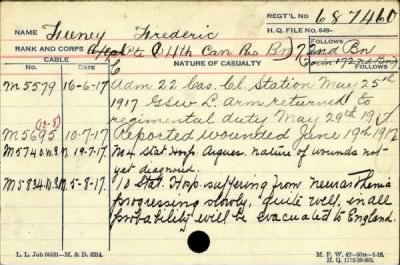 REGT'L No 687460
NAME Feeney Frederic
H.Q. FILE No. 649-
RANK AND CORPS Pte 14th Can Res Bn 72nd Bn
FOLLOWS
(Form 172nd Bn)
CABLE
No. DATE NATURE OF CASUALTY FOLLOWS
M5579 16-6-17 Adm 22 Cas. Cl. Station May 25th
1917 G.S.W. L. Arm returned to
regimental duty May 29th 1917
(13-8)
M5695 10-7-17 Reported wounded June 19th 1917
M5740 19-7-17 No 4 Stat Hosp. Arques. nature of wounds not
yet diagnosed.
M5834 5-8-17 10 Stat. Hosp suffering from neurasthenia
progressing slowly, quite well, in all
probability will be evacuated to England.
L. L. Job 94581—M. & D. 6314.
M. F. W. 42—50M—1-16.
H. Q. 1772-39-893.